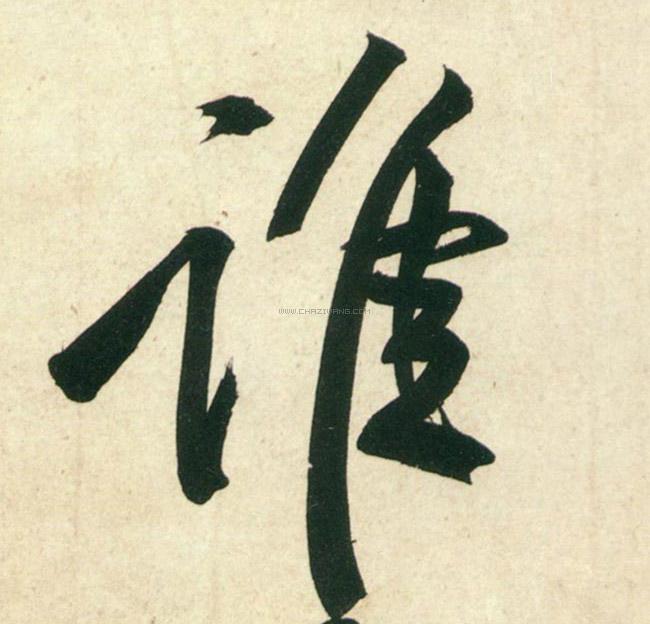 谁
WWW.CHAZIWANG.COM